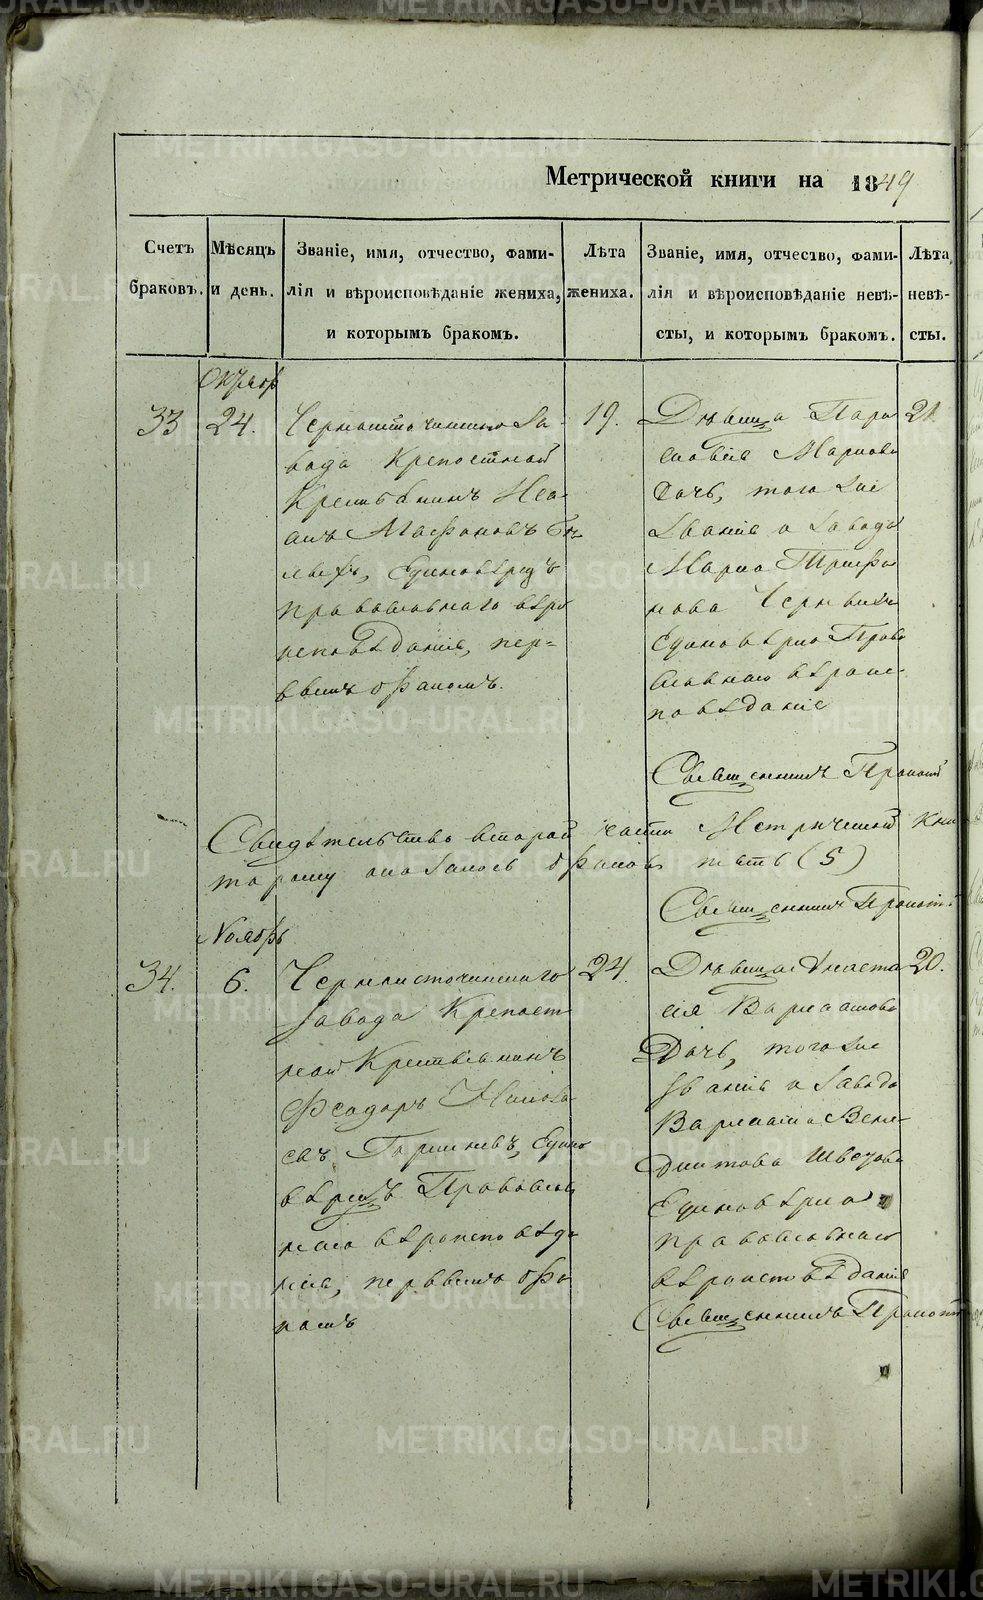 Метрической книги на 1849
Счетъ браковъ.
Мѣсяцъ и день.
Званіе, имя, отчество, фами-
лія и вѣроисповѣданіе жениха,
и которымъ бракомъ.
Лѣта жениха.
Званіе, имя, отчество, фами-
лія и вѣроисповѣданіе невѣ-
сты, и которымъ бракомъ.
Лѣта невѣ-
сты.
Октябр
33
24.
За-
вода Крепостной
Крестьянинъ
Единовѣрецъ
православнаго вѣро
исповѣданія, пер-
вымъ бракомъ.
19.
Дѣвица Пара
сковія Маркова
Дочь, того же
званія и завода
Марка Трифо
нова
Единовѣрка Право
славнаго вѣроис-
повѣданія
21.
Священникъ
Свидѣтельство второй части Метрической Кни
торому оказалось браковъ пять (5)
Священникъ
Ноябрь
34.
6.
Черноисточинскаго
Завода Крепост
ной Крестьянинъ
Феодоръ
Едино
вѣрецъ Православ
наго вѣроисповѣда
нія, первымъ бра
комъ
24.
Дѣвица Анаста
сія Варлаамова
Дочь, того же
званія и завода
Варлаама Вене-
диктова Швецова
Единовѣрка
православнаго
вѣроисповѣданія
Священникъ
20.
METRIKI.GASO-URAL.RU